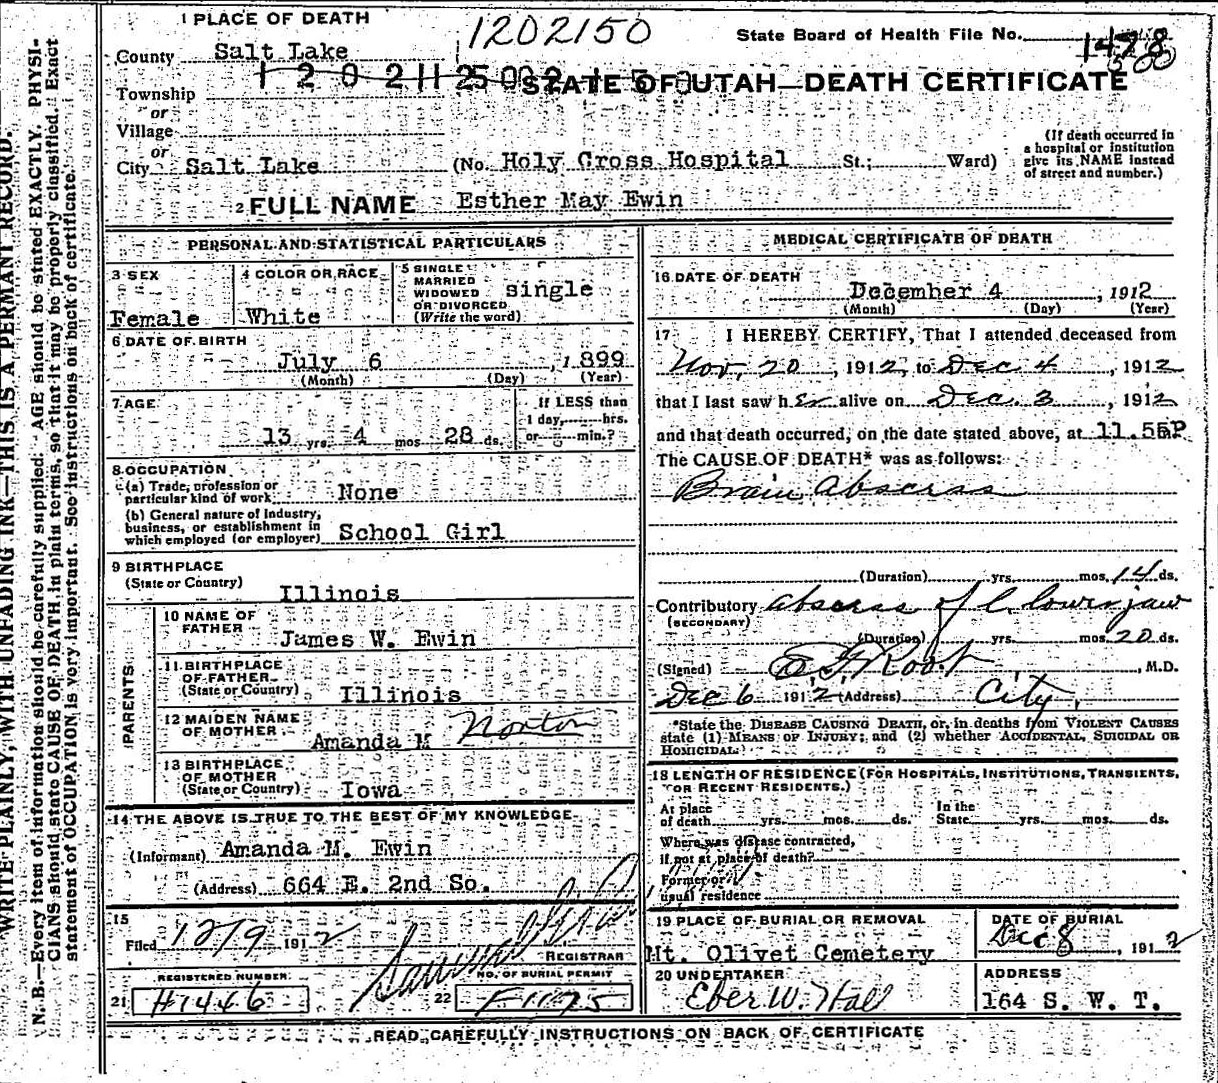 1 PLACE OF DEATH
1202150
State Board of Health File No.
County Salt Lake
STATE OF UTAH—DEATH CERTIFICATE
Township
or
Village
or
City Salt Lake (No. Holy Cross Hospital St.; Ward)
(If death occurred in
a hospital or institution
give its NAME instead
of street and number.)
2 FULL NAME Esther May Ewin
PERSONAL AND STATISTICAL PARTICULARS
3 SEX
Female
4 COLOR OR RACE
White
5 SINGLE
MARRIED
WIDOWED
OR DIVORCED
(Write the word)
single
6 DATE OF BIRTH
July 6, 1899
(Month) (Day) (Year)
7 AGE
13 yrs. 4 mos 28 ds.
If LESS than
1 day, hrs.
or min.?
8 OCCUPATION
(a) Trade, profession or
particular kind of work None
(b) General nature of Industry,
business, or establishment in
which employed (or employer) School Girl
9 BIRTHPLACE
(State or Country)
Illinois
PARENTS
10 NAME OF
FATHER
James W. Ewin
11 BIRTHPLACE
OF FATHER
(State or Country) Illinois
12 MAIDEN NAME
OF MOTHER
Amanda M Norton
13 BIRTHPLACE
OF MOTHER
(State or Country) Iowa
14 THE ABOVE IS TRUE TO THE BEST OF MY KNOWLEDGE
(Informant) Amanda M. Ewin
(Address) 664 E. 2nd So.
15
Filed 12/9 1912
REGISTRAR
REGISTERED NUMBER
21 H1446
NO. OF BURIAL PERMIT
22 F1175
MEDICAL CERTIFICATE OF DEATH
16 DATE OF DEATH
December 4, 1912
(Month) (Day) (Year)
17 I HEREBY CERTIFY, That I attended deceased from
Nov. 20, 1912, to Dec 4, 1912
that I last saw her alive on Dec. 3, 1912
and that death occurred, on the date stated above, at 11.55P
The CAUSE OF DEATH* was as follows:
Brain Abscess
(Duration) yrs. mos. 14 ds.
Contributory Abscess of l. lower jaw
(SECONDARY)
(Duration) yrs. mos. 20 ds.
(Signed) E. F. Root, M.D.
Dec 6 1912 (Address) City.
*State the DISEASE CAUSING DEATH, or, in deaths from VIOLENT CAUSES
state (1) MEANS OF INJURY; and (2) whether ACCIDENTAL, SUICIDAL OR
HOMICIDAL.
18 LENGTH OF RESIDENCE (FOR HOSPITALS, INSTITUTIONS, TRANSIENTS,
OR RECENT RESIDENTS.)
At place
of death yrs. mos. ds.
In the
State yrs. mos. ds.
Where was disease contracted,
if not at place of death?
Former or
usual residence
19 PLACE OF BURIAL OR REMOVAL
Mt. Olivet Cemetery
DATE OF BURIAL
Dec 8, 1912
20 UNDERTAKER
Eber W. Hall
ADDRESS
164 S. W. T.
READ CAREFULLY INSTRUCTIONS ON BACK OF CERTIFICATE
WRITE PLAINLY, WITH UNFADING INK—THIS IS A PERMANT RECORD.
N. B.—Every item of information should be carefully supplied. AGE should be stated EXACTLY. PHYSI-
CIANS should state CAUSE OF DEATH in plain terms, so that it may be properly classified. Exact
statement of OCCUPATION is very important. See instructions on back of certificate.